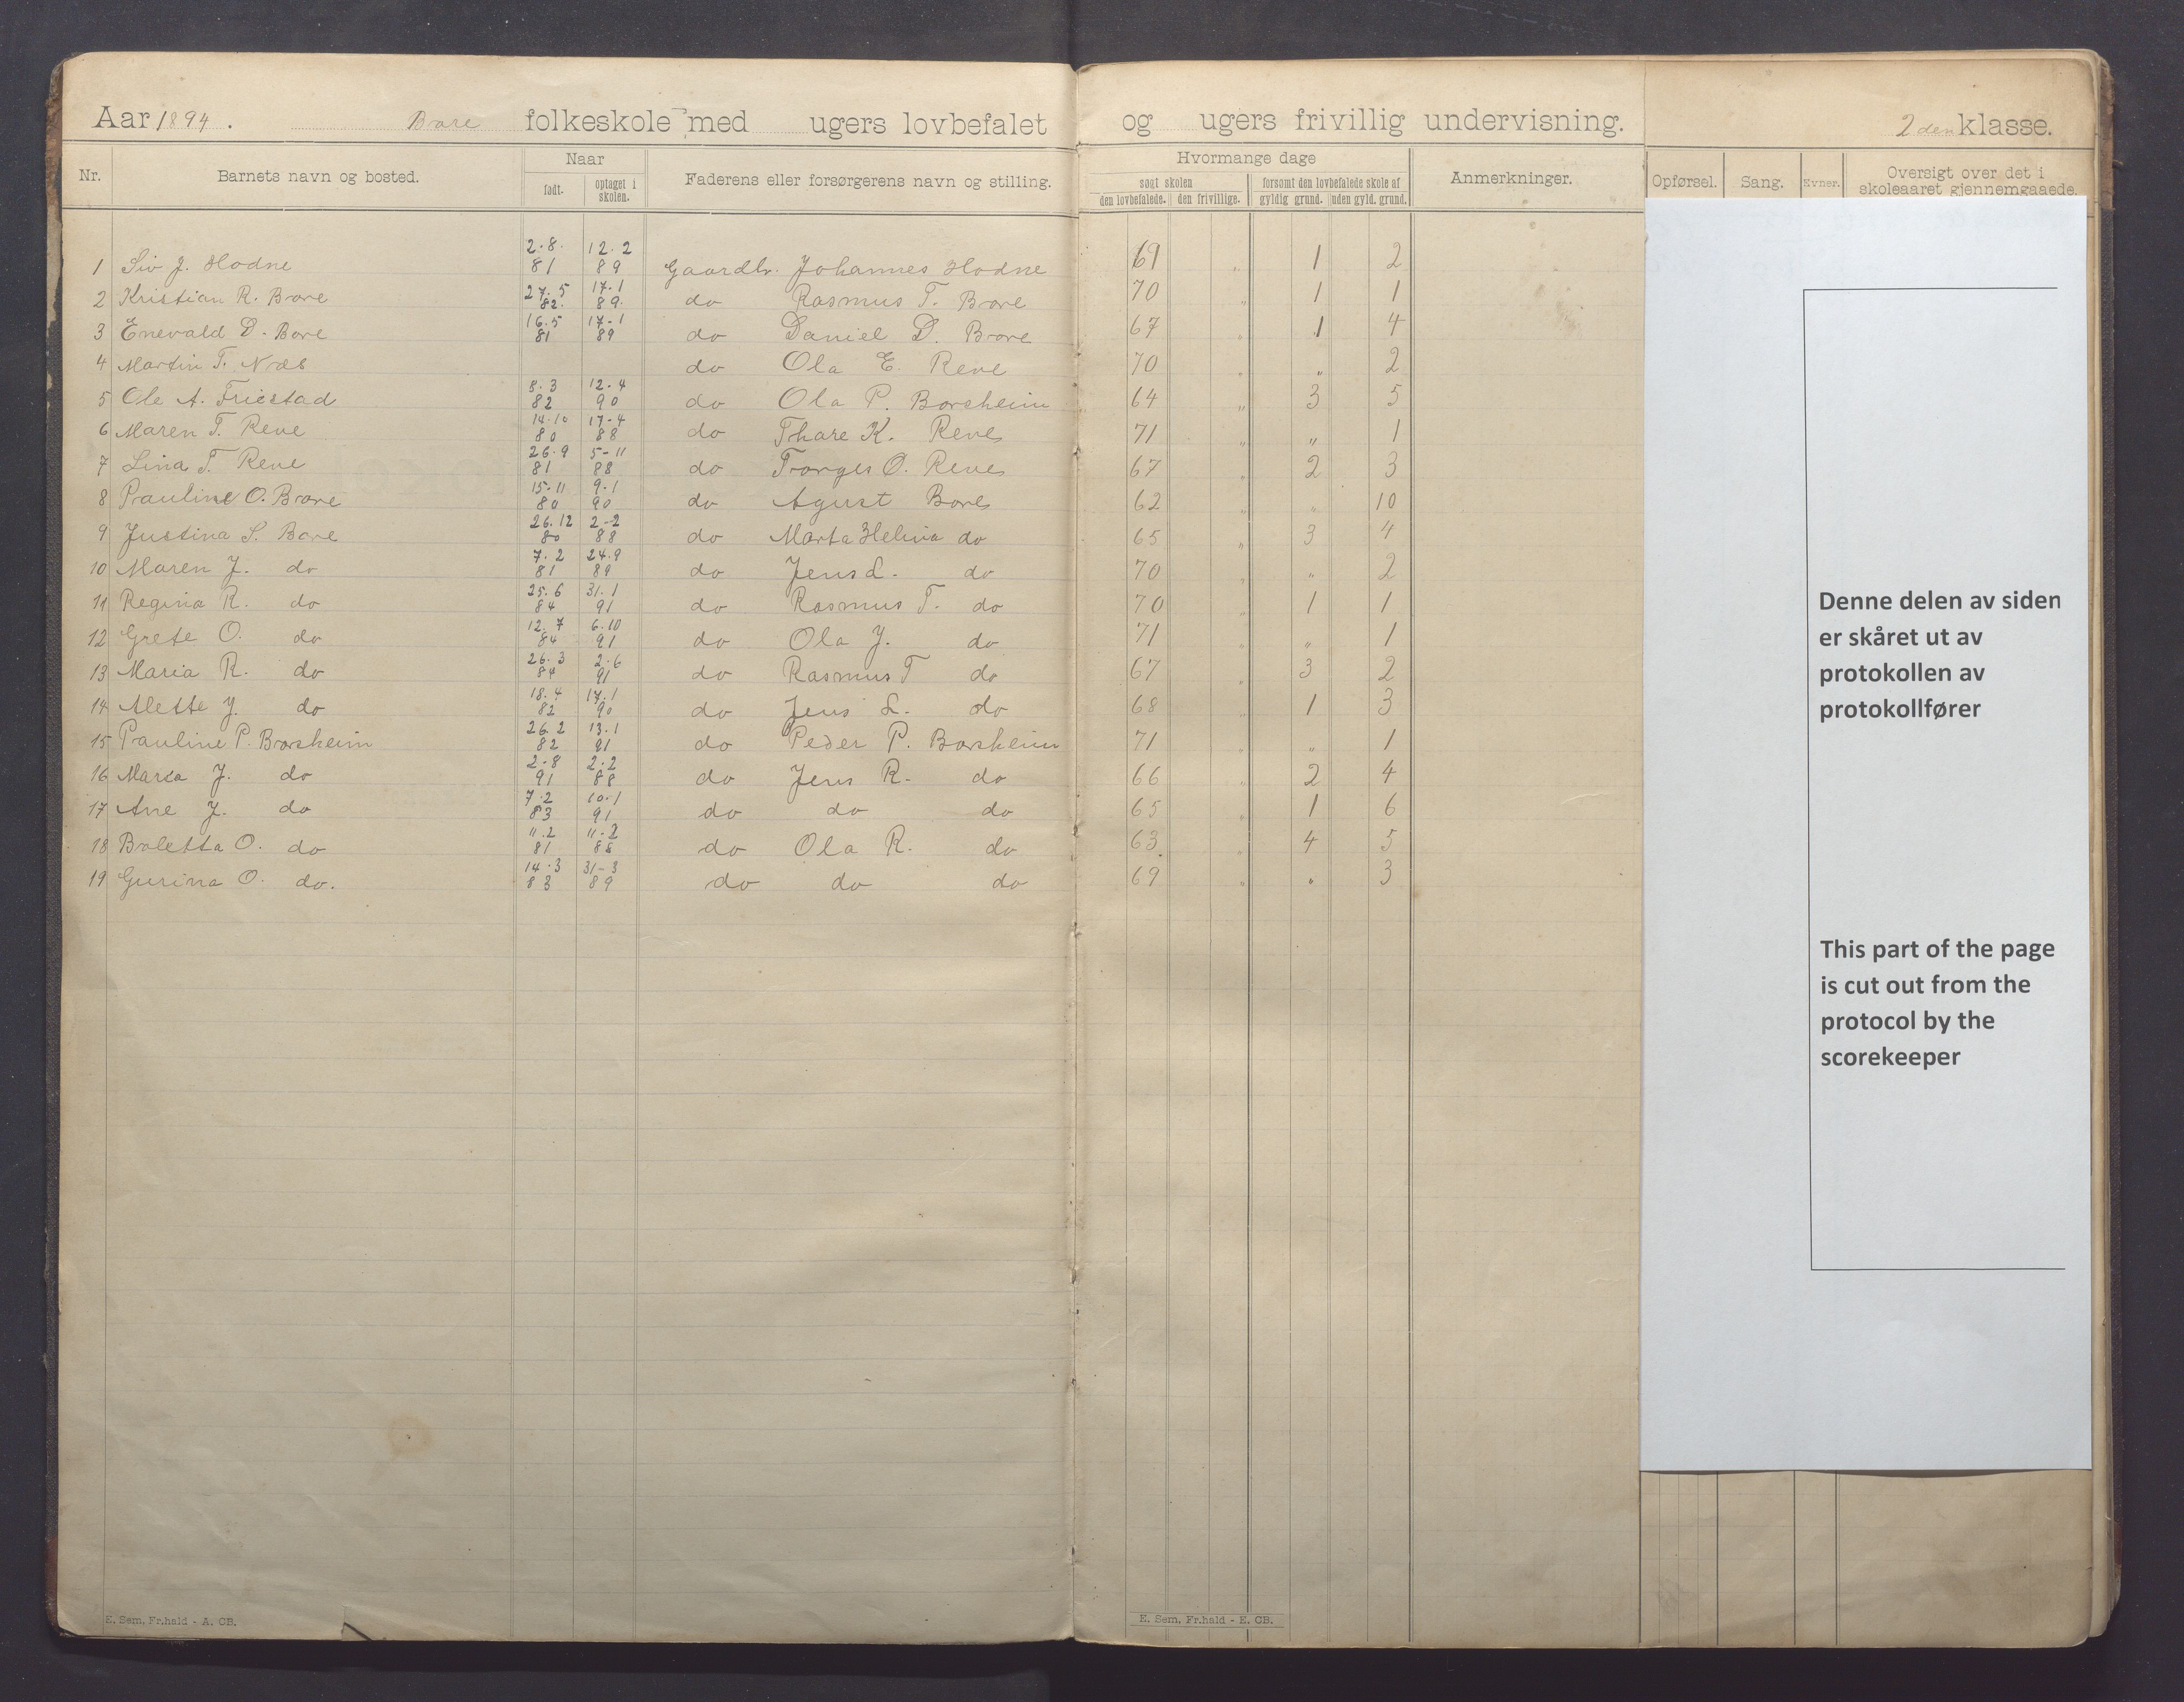 Aar 1894. Bore folkeskole med ugers lovbefalet og ugers frivillig undervisning. 2den klasse.
Nr. Barnets navn og bosted. Naar født. optaget i skolen. Faderens eller forsørgerens navn og stilling. Hvormange dage søgt skolen den lovbefalede. den frivillige. forsømt den lovbefalede skole af gyldig grund. uden gyld. grund. Anmerkninger. Opførsel. Sang. Evner. Oversigt over det i skoleaaret gjennemgaaede.
1 Siv J. Hodne 2.8. 81 12.2 89 Gaardbr. Johannes Hodne 69 " 1 2
2 Kristian R. Bore 27.5 82. 17.1 89. do Rasmus T. Bore 70 " 1 1
3 Enevald D. Bore 16.5 81 17-1 89 do Daniel D. Bore 67 " 1 4
4 Martin T. Næs do Ola E. Reve 70 " " 2
5 Ole A. Friestad 8.3 82 12.4 90 do Ola P. Borsheim 64 " 3 5
6 Maren T. Reve 14.10 80 17-4 88 do Thore K. Reve 71 " " 1
7 Lina T. Reve 26.9 81 5-11 88 do Torger O. Reve 67 " 2 3
8 Pauline O. Bore 15-11 80 9.1 90 do Agust Bore 62 " " 10
9 Justina S. Bore 26.12 80 2-2 88 do Marta Helina do 65 " 3 4
10 Maren J. do 7.2 81 24.9 89 do Jens L. do 70 " " 2
11 Regina R. do 25.6 84 31.1 91 do Rasmus T. do 70 " 1 1
12 Grete O. do 12.7 84 6.10 91 do Ola J. do 71 " " 1
13 Maria R. do 26.3 84 2.6 91 do Rasmus T do 67 " 3 2
14 Alette J. do 18.4 82 17.1 90 do Jens L. do 68 " 1 3
15 Pauline P. Borsheim 26.2 82 13.1 91 do Peder P. Borsheim 71 " " 1
16 Marta J. do 2-8 91 2.2 88 do Jens R. do 66 " 2 4
17 Ane J. do 7.2 83 10.1 91 do do do 65 " 1 6
18 Boletta O. do 11.2 81 11-2 88 do Ola R. do 63 " 4 5
19 Gurina O. do. 14.3 83 31-3 89 do do do 69 " " 3
Denne delen av siden
er skåret ut av
protokollen av
protokollfører
This part of the page
is cut out from the
protocol by the
scorekeeper
E. Sem, Fr.hald - A. CB.
E. Sem, Fr.hald - E. CB.